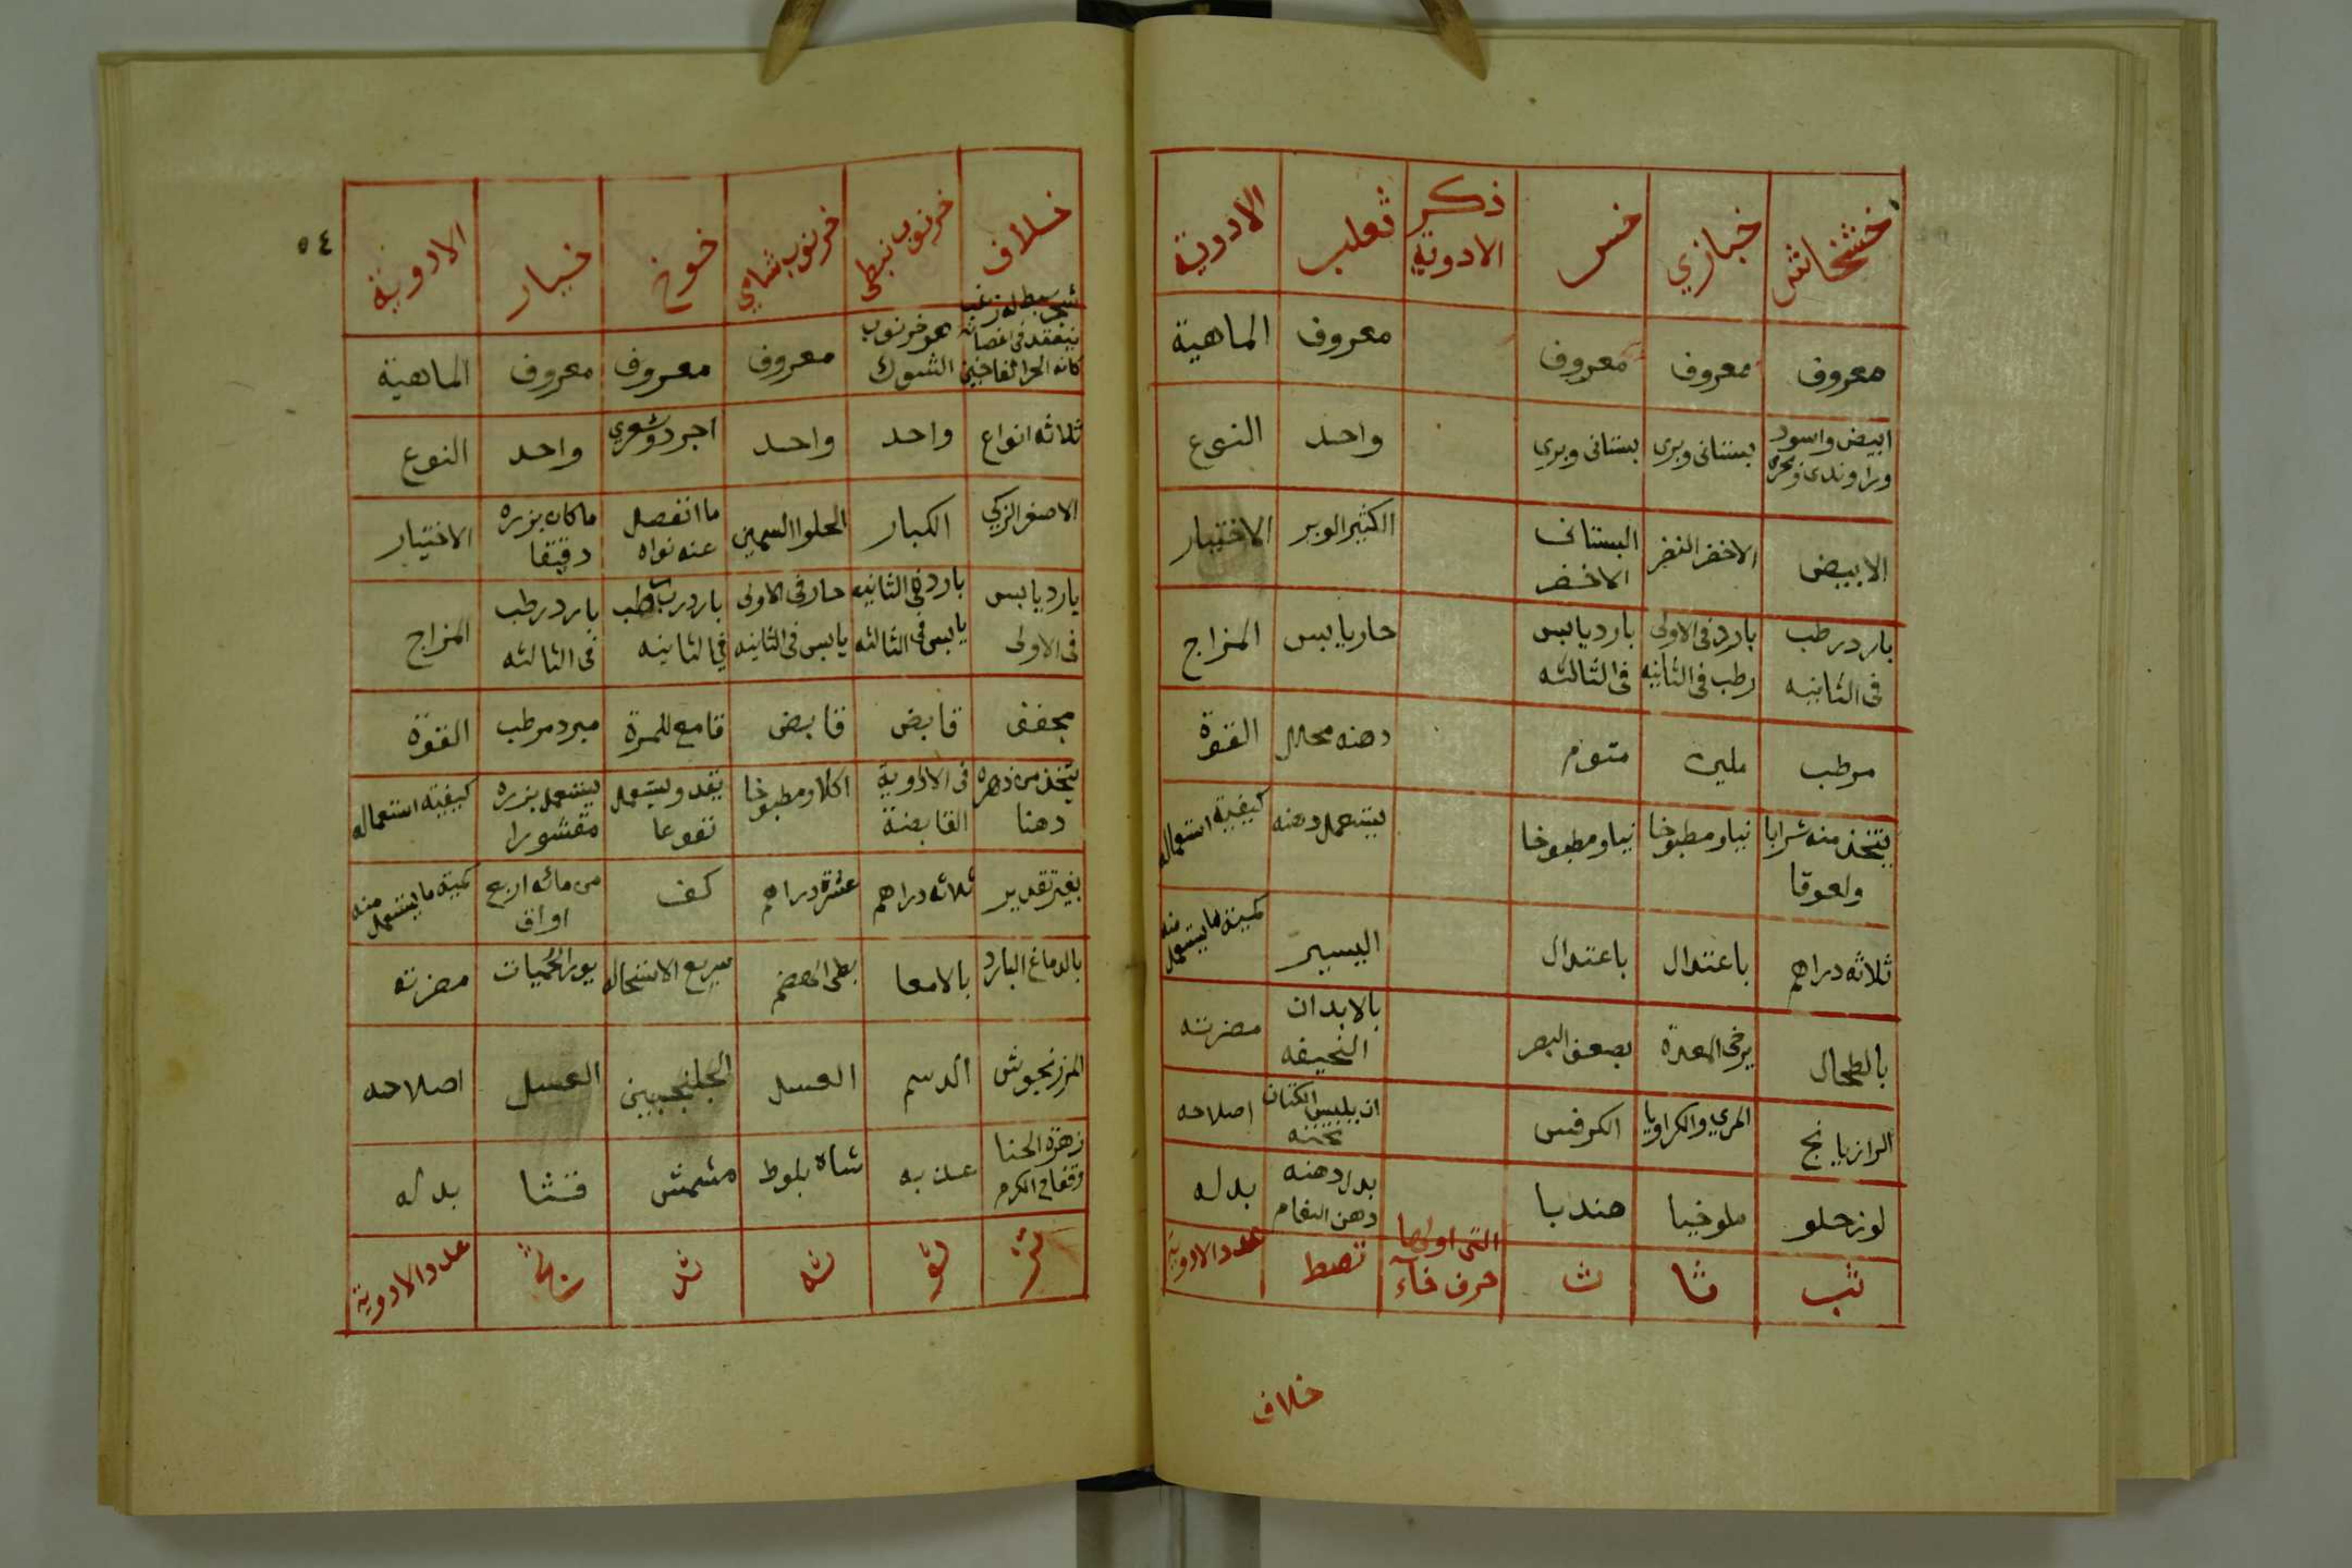 خشخاش خبازي خس ذكر الادوية ثعلب الادوية
معروف معروف معروف معروف الماهية
ابيض واسود بستانى وبرى بستانى وبري واحد النوع
الابيض الاخضر الغض البستانى الاخضر الكثير الوبر الاختيار
بارد رطب فى الثانيه بارد فى الاولى رطب فى الثانيه بارد يابس فى الثالثه حار يابس المزاج
مرطب ملين منوم دهنه محلل القوة
يتخذ منه شرابا ولعوقا نيا ومطبوخا نيا ومطبوخا يستعمل دهنه كيفية استعماله
ثلاثه دراهم باعتدال باعتدال اليسير كمية ما يستعمل منه
بالطحال يرخى المعدة يضعف البصر بالابدان النحيفه مضرته
الرازيانج المري والكراويا الكرفس ان يلبس الكتان تحته اصلاحه
لوز حلو ملوخيا هندبا بدل دهنه دهن النعام بدله
ثب ثا ث التى اولها حرف خآء تصط عدد الادوية
خلاف
٥٤
خلاف خرنوب نبطى خرنوب شامي خوخ خيار الادوية
هو خرنوب الشوك معروف معروف معروف الماهية
ثلاثه انواع واحد واحد اجرد وشعري واحد النوع
الاصفر الزكي الكبار الحلو السمين ما انفصل عنه نواه ما كان بزره دقيقا الاختيار
بارد يابس فى الاولى بارد فى الثانيه يابس فى الثالثه حار فى الاولى يابس فى الثانيه بارد رطب في الثانيه بارد رطب فى الثالثه المزاج
مجفف قابض قابض قامع للمرة مبرد مرطب القوة
يتخذ من زهره دهنا فى الادوية القابضة اكلا ومطبوخا يقدد ويستعمل نقوعا يستعمل بزره مقشورا كيفية استعماله
بغير تقدير ثلاثه دراهم عشرة دراهم كف من مائه اربع اواق كمية ما يستعمل منه
بالدماغ البارد بالامعا بطى الهضم سريع الاستحاله يورث الحميات مضرته
المرزنجوش الدسم العسل الجلنجبين العسل اصلاحه
زهرة الحنا وفقاح الكرم عذبه شاه بلوط مشمش قثا بدله
ثز ثو ثه ثد ثج عدد الادوية